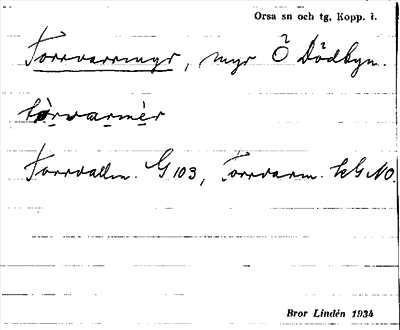 Orsa sn och tg, Kopp. l.
Torrvarrmyr, myr Ö Dödbyn.
tòrvarmèr
Torrvallm. G 103, Torrvarm. kG NO.
Bror Lindén 1934